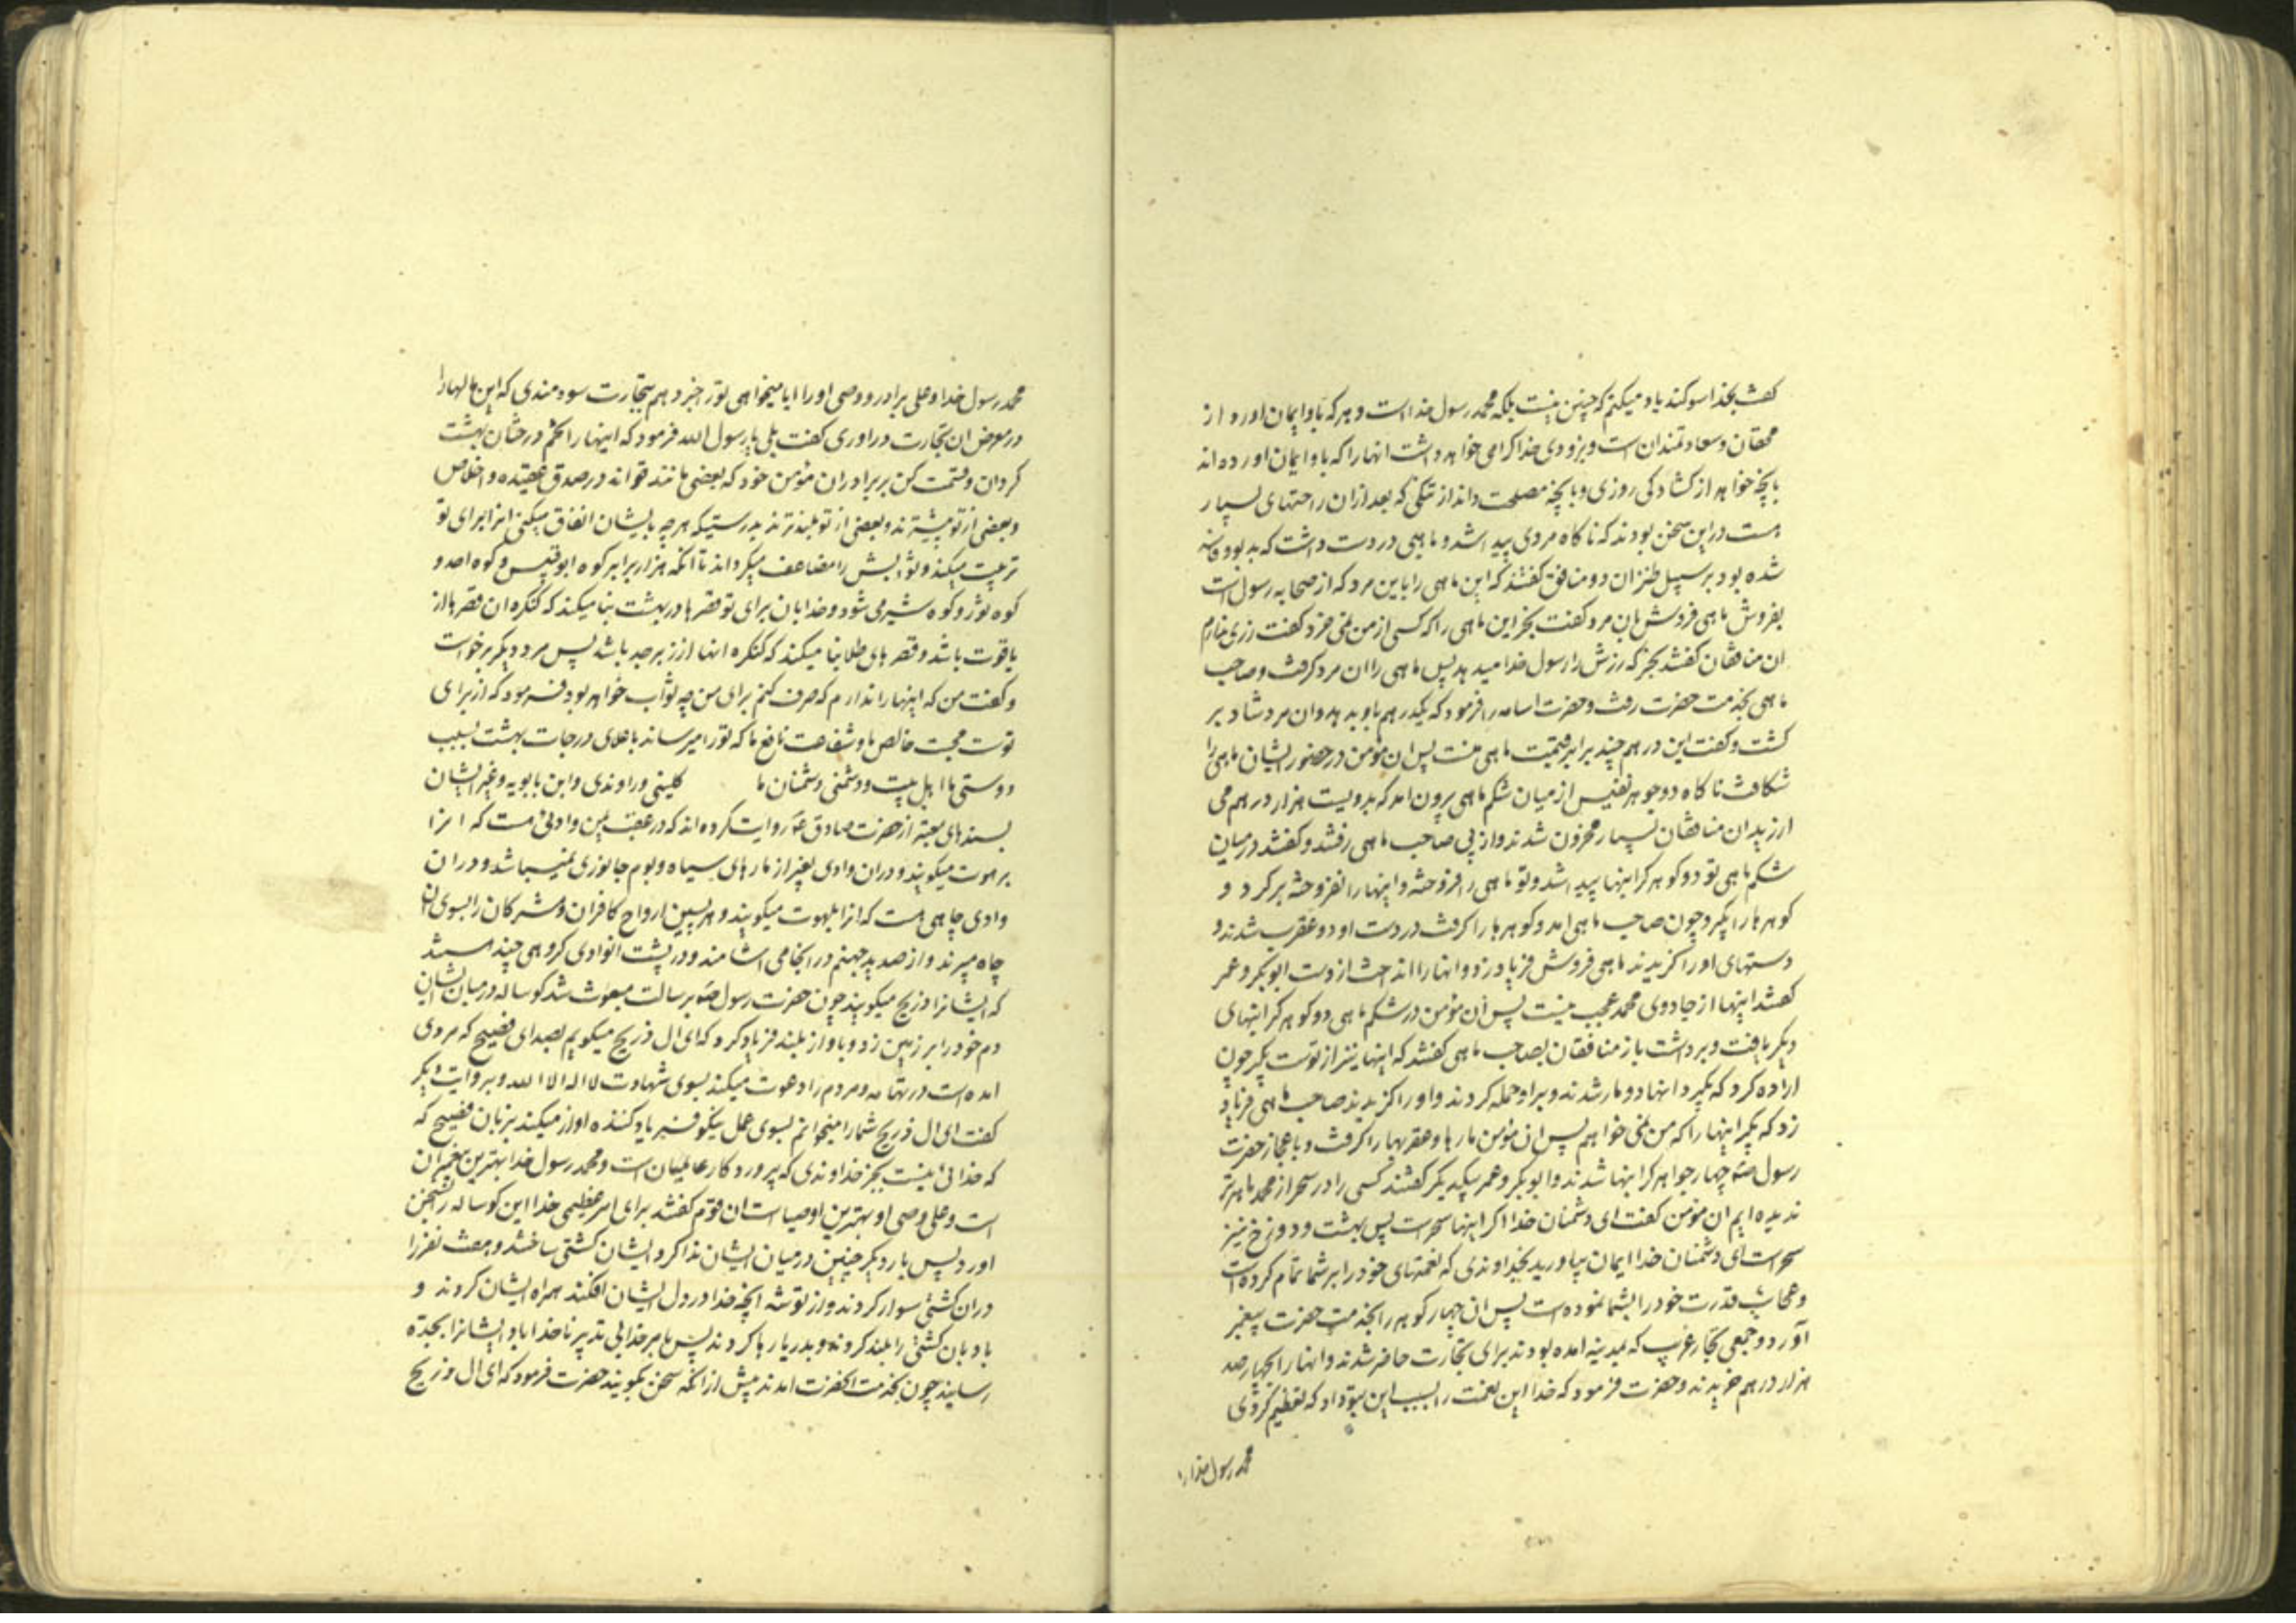 گفت بخدا سوگند یاد میکنم که چنین نیست بلکه محمد رسول خداست و هر که باو ایمان اورد از
محقان و سعادتمندان است و بزودی خدا کرامی خواهد داشت انها را که باو ایمان اورده اند
بانچه خواهد از کشادکی روزی و بانچه مصلحت داند از تنکی که بعد از ان راحتهای بسیار
هست در این سخن بودند که ناکاه مردی پیدا شد و ماهی در دست داشت که بد بود
شده بود بر سبیل طنز ان دو منافق کفتند که این ماهی را باین مرد که از صحابه رسول است
بفروش ماهی فروش بان مرد کفت بخر این ماهی را که کسی از من نمی خرد کفت زری ندارم
ان منافقان کفتند بخر که زرش را رسول خدا میدهد پس ماهی را ان مرد کرفت و صاحب
ماهی بخدمت حضرت رفت و حضرت اسامه را فرمود که یکدرهم باو بدهد و ان مرد شاد بر
کشت و کفت این درهم چند برابر قیمت ماهی منست پس ان مؤمن در حضور ایشان ماهی را
شکافت ناکاه دو جوهر نفیس از میان شکم ماهی برون امد که بدویست هزار درهم می
ارزید ان منافقان بسیار محزون شدند و از پی صاحب ماهی رفتند و کفتند در میان
شکم ماهی تو دو کوهر کرانبها پیدا شد و تو ماهی را فروخته و اینها را نفروخته برکرد و
کوهرها را بکیر و چون صاحب ماهی امد و کوهرها را کرفت در دست او دو عقرب شدند و
دستهای او را کزیدند ماهی فروش فریاد زد و انها را انداخت از دست ابوبکر و عمر
کفتند اینها از جادوی محمد عجب نیست پس ان مؤمن در شکم ماهی دو کوهر کرانبهای
دیکر یافت و برداشت باز منافقان بصاحب ماهی کفتند که اینها نیز از توست بکیر چون
اراده کرد که بکیرد انها دو مار شدند و بر او حمله کردند و او را کزیدند صاحب ماهی فریاد
زد که بکیر اینها را که من نمی خواهم پس ان مؤمن مارها و عقربها را کرفت و باعجاز حضرت
رسول ص چهار جواهر کرانبها شدند و ابوبکر و عمر بیکدیکر کفتند کسی را در سحر از محمد ماهرتر
ندیده ایم ان مؤمن کفت ای دشمنان خدا اکر اینها سحر است پس بهشت و دوزخ نیز
سحر است ای دشمنان خدا ایمان بیاورید بخداوندی که نعمتهای خود را بر شما تمام کرده است
و عجایب قدرت خود را بشما نموده است پس ان چهار کوهر را بخدمت حضرت پیغمبر
آورد و جمعی تجار غریب که بمدینه امده بودند برای تجارت حاضر شدند و انها را بچهار صد
هزار درهم خریدند و حضرت فرمود که خدا این نعمت را بسبب این بتو داد که تعظیم کردی
محمد رسول خدا را
محمد رسول خدا و علی برادر و وصی او را ایا میخواهی تو را خبر دهم بتجارت سودمندی که این مالها را
در معرض ان تجارت دراوری کفت بلی یا رسول الله فرمود که اینها را تخم درختان بهشت
کردان و قسمت کن بر برادران مؤمن خود که بعضی مانند تو اند در صدق عقیده و اخلاص
و بعضی از تو پست‌ترند و بعضی از تو بلندترند بدرستیکه هر چه بایشان انفاق میکنی انرا برای تو
تربیت میکند و ثوابش را مضاعف میکرداند تا انکه هزار برابر کوه ابوقبیس و کوه احد و
کوه ثور و کوه ثبیر می شود و خدا بان برای تو قصرها در بهشت بنا میکند که کنکره ان قصرها از
یاقوت باشد و قصرهای طلا بنا میکند که کنکره انها از زبرجد باشد پس مرد دیکر برخواست
و کفت من که اینها را ندارم که صرف کنم برای من چه ثواب خواهد بود فرمود که از برای
توست محبت خالص ما و شفاعت نافع ما که تو را میرساند باعلای درجات بهشت بسبب
دوستی ما اهل بیت و دشمنی دشمنان ما کلینی و راوندی و ابن بابویه و غیر ایشان
بسندهای معتبر از حضرت صادق ع روایت کرده اند که در عقب یمن وادئی هست که انرا
برهوت میکویند و در ان وادی بغیر از مارهای سیاه و بوم جانوری نمیباشد و در ان
وادی چاهی هست که انرا بلهوت میکویند و هر پسین ارواح کافران و مشرکان را بسوی ان
چاه میبرند و از صدید جهنم در انجا می اشامند و در پشت انوادی کروهی چند هستند
که ایشانرا ذریح میکویند چون حضرت رسول ص برسالت مبعوث شد کوساله در میان ایشان
دم خود را بر زمین زد و باواز بلند فریاد کرد که ای ال ذریح میکویم بصدای فصیح که مردی
امده است در تهامه و مردم را دعوت میکند بسوی شهادت لا اله الا الله و بروایت دیکر
کفت ای ال ذریح شما را میخوانم بسوی عمل نیکو فریاد کننده اواز میکند بزبان فصیح که
که خدائی نیست بجز خداوندی که پروردکار عالمیان است و محمد رسول خدا بهترین پیغمبران
است و علی وصی او بهترین اوصیا است ان قوم کفتند برای امر عظیمی خدا این کوساله را بسخن
اورد پس بار دیکر چنین در میان ایشان ندا کرد و ایشان کشتی ساختند و هفت نفر را
در ان کشتی سوار کردند و از توشه انچه خدا در دل ایشان افکند همراه ایشان کردند و
بادبان کشتی را بلند کردند و بدریا رها کردند پس بامر خدا بی تدبیر ناخدا باد ایشانرا بجده
رسانید چون بخدمت انحضرت امدند پیش از انکه سخن بکویند حضرت فرمود که ای ال ذریح